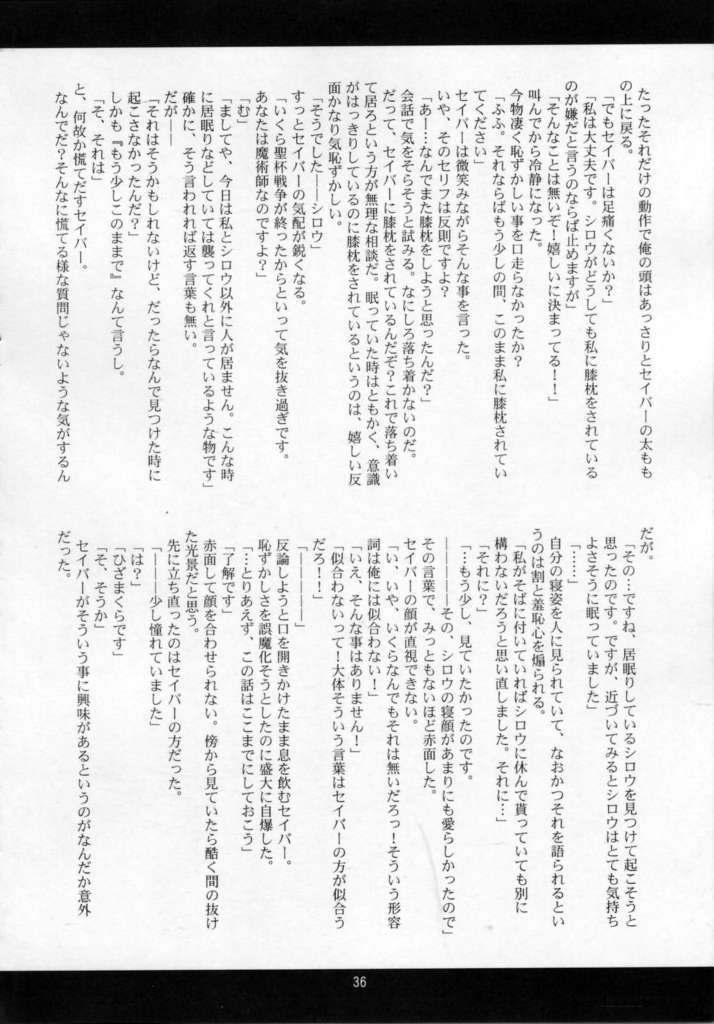 たったそれだけの動作で俺の頭はあっさりとセイバーの太もも
の上に戻る。
「でもセイバーは足痛くないか？」
「私は大丈夫です。シロウがどうしても私に膝枕をされている
のが嫌だと言うのならば止めますが」
「そんなことは無いぞ！嬉しいに決まってる！！」
叫んでから冷静になった。
今物凄く恥ずかしい事を口走らなかったか？
「ふふ。それならばもう少しの間、このまま私に膝枕されてい
てください」
セイバーは微笑みながらそんな事を言った。
いや、そのセリフは反則ですよ？
「あー…なんでまた膝枕をしようと思ったんだ？」
会話で気をそらそうと試みる。なにしろ落ち着かないのだ。
だって、セイバーに膝枕をされているんだぞ？これで落ち着い
て居ろという方が無理な相談だ。眠っていた時はともかく、意識
がはっきりしているのに膝枕をされているというのは、嬉しい反
面かなり気恥ずかしい。
「そうでした――シロウ」
すっとセイバーの気配が鋭くなる。
「いくら聖杯戦争が終ったからといって気を抜き過ぎです。
あなたは魔術師なのですよ？」
「む」
「ましてや、今日は私とシロウ以外に人が居ません。こんな時
に居眠りなどしていては襲ってくれと言っているような物です」
確かに、そう言われれば返す言葉も無い。
だが――
「それはそうかもしれないけど、だったらなんで見つけた時に
起こさなかったんだ？」
しかも『もう少しこのままで』なんて言うし。
「そ、それは」
と、何故か慌てだすセイバー。
なんでだ？そんなに慌てる様な質問じゃないような気がするん
だが。
「その…ですね、居眠りしているシロウを見つけて起こそうと
思ったのです。ですが、近づいてみるとシロウはとても気持ち
よさそうに眠っていました」
「……」
自分の寝姿を人に見られていて、なおかつそれを語られるとい
うのは割と羞恥心を煽られる。
「私がそばに付いていればシロウに休んで貰っていても別に
構わないだろうと思い直しました。それに…」
「それに？」
「…もう少し、見ていたかったのです。
――――その、シロウの寝顔があまりにも愛らしかったので」
その言葉で、みっともないほど赤面した。
セイバーの顔が直視できない。
「い、いや、いくらなんでもそれは無いだろっ！そういう形容
詞は俺には似合わない！」
「いえ、そんな事はありません！」
「似合わないって！大体そういう言葉はセイバーの方が似合う
だろ！！」
「――――」
反論しようと口を開きかけたまま息を飲むセイバー。
恥ずかしさを誤魔化そうとしたのに盛大に自爆した。
「…とりあえず、この話はここまでにしておこう」
「了解です」
赤面して顔を合わせられない。傍から見ていたら酷く間の抜け
た光景だと思う。
先に立ち直ったのはセイバーの方だった。
「――――少し憧れていました」
「は？」
「ひざまくらです」
「そ、そうか」
セイバーがそういう事に興味があるというのがなんだか意外
だった。
36